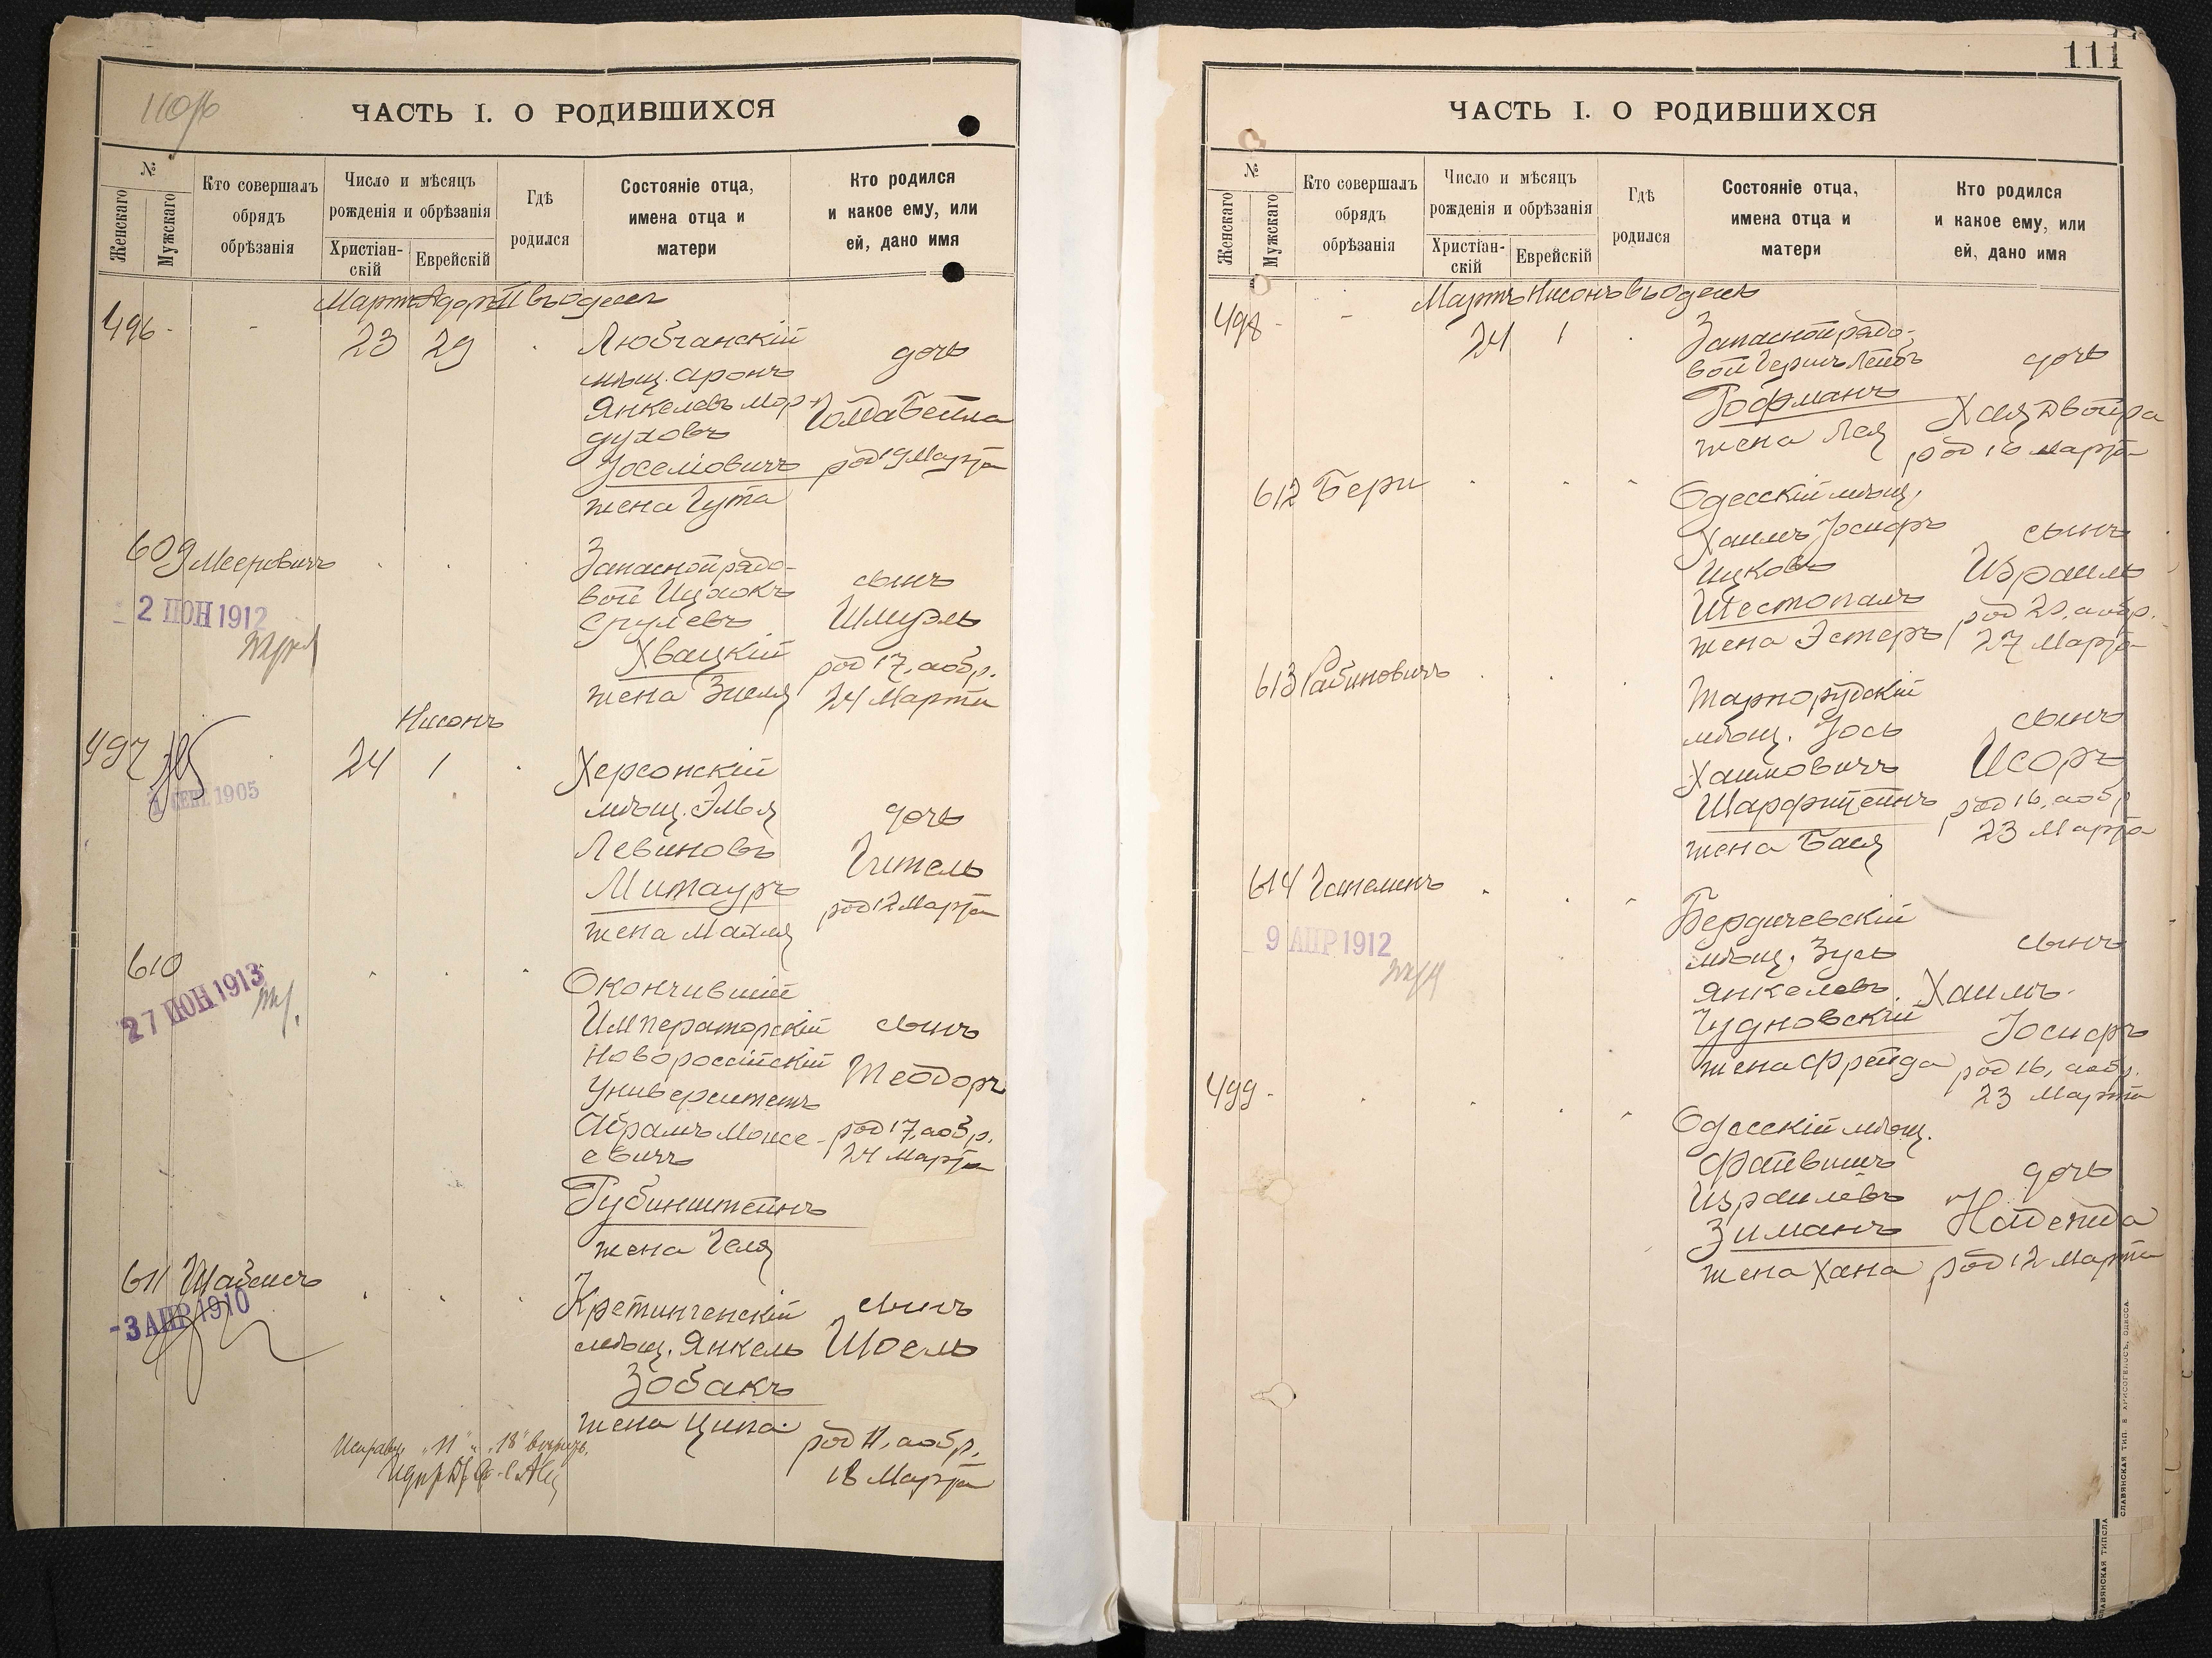 110
ЧАСТЬ I. О РОДИВШИХСЯ
№
Женскаго
Мужскаго
Кто совершалъ
обрядъ
обрѣзанія
Число и мѣсяцъ
рожденія и обрѣзанія
Христіан-
скій
Еврейскій
Гдѣ
родился
Состояніе отца,
имена отца и
матери
Кто родился
и какое ему, или
ей, дано имя
Мартъ Адаръ II въ Одессѣ
496 - - 23 29
Любчанскій
мѣщ. Аронъ
Янкелевъ Мор-
духовъ
Іоселіовичъ
жена Гута
дочь
Голда Бейла
род 19 Марта
609 Мееровичъ
2 ІЮН 1912
Запасной рядо-
вой Ицхокъ
Срулевъ
Хвацкій
жена Зисля
сынъ
Шмуэль
род 17, а обр.
24 Марта
Нисонъ
497 24 1
СЕН 1905
Херсонскій
мѣщ. Элья
Левиновъ
Митауръ
жена Махля
дочь
Гитель
род 12 Марта
610
27 ІЮН 1913
Окончившій
Императорскій
Новороссійскій
Университетъ
Абрамъ Моисе-
евичъ
Рубинштейнъ
жена Геля
сынъ
Теодоръ
род 17, а обр.
24 Марта
611 Шабсисъ
-3 АПР 1910
Кретингенскій
мѣщ. Янкель
Зобакъ
жена Ципа
сынъ
Шоель
род 11, а обр.
18 Марта
„11" „18"
111
ЧАСТЬ I. О РОДИВШИХСЯ
№
Женскаго
Мужскаго
Кто совершалъ
обрядъ
обрѣзанія
Число и мѣсяцъ
рожденія и обрѣзанія
Христіан-
скій
Еврейскій
Гдѣ
родился
Состояніе отца,
имена отца и
матери
Кто родился
и какое ему, или
ей, дано имя
Мартъ Нисонъ въ Одессѣ
498 - - 24 1
Запасной рядо-
вой Гершъ Лейбъ
Гофманъ
жена Лея
дочь
Хая Двойра
род 16 Марта
612 Бери
Одесскій мѣщ.
Хаимъ Іосифъ
Ицковъ
Шестопалъ
жена Эстеръ
сынъ
Израиль
род 20, а обр.
27 Марта
613 Рабиновичъ
Тарнорудскій
мѣщ. Іось
Хаимовичъ
Шарфштейнъ
жена Бася
сынъ
Исоръ
род 16, а обр
23 Марта
614
9 АПР 1912
Бердичевскій
мѣщ. Зусь
Янкелевъ
Чудновскій
жена Фрейда
сынъ
Хаимъ-
Іосифъ
род 16, а обр.
23 Марта
499 -
Одесскій мѣщ.
Файвишъ
Израилевъ
Зиманъ
жена Хана
дочь
Надежда
род 12 Марта
СЛАВЯНСКАЯ ТИП. Е. ХРИСОГЕЛОСЪ, ОДЕССА.